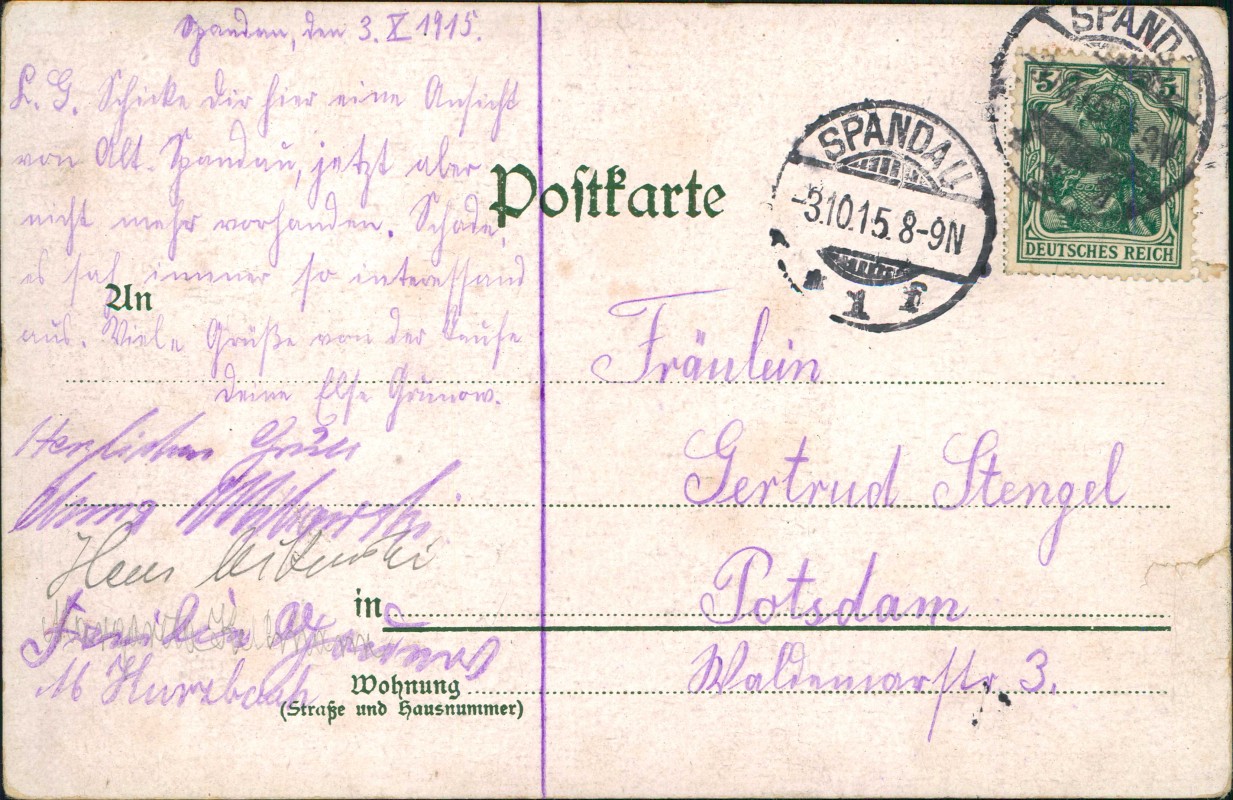 Spandau, den 3. X 1915.
L. G. Schicke Dir hier eine Ansicht
von Alt-Spandau, jetzt aber
nicht mehr vorhanden. Schade,
es sah immer so interessand
aus. Viele Grüße von der Taufe
Deine Else Grunow.
Herzlichen Gruß
Hans
Familie
M Kurzbach
Postkarte
An
in
Wohnung
(Straße und Hausnummer)
SPANDAU
-3.10.15.8-9N
1 f
SPAND
5 5
DEUTSCHES REICH
Fräulein
Gertrud Stengel
Potsdam
Waldemarstr. 3.